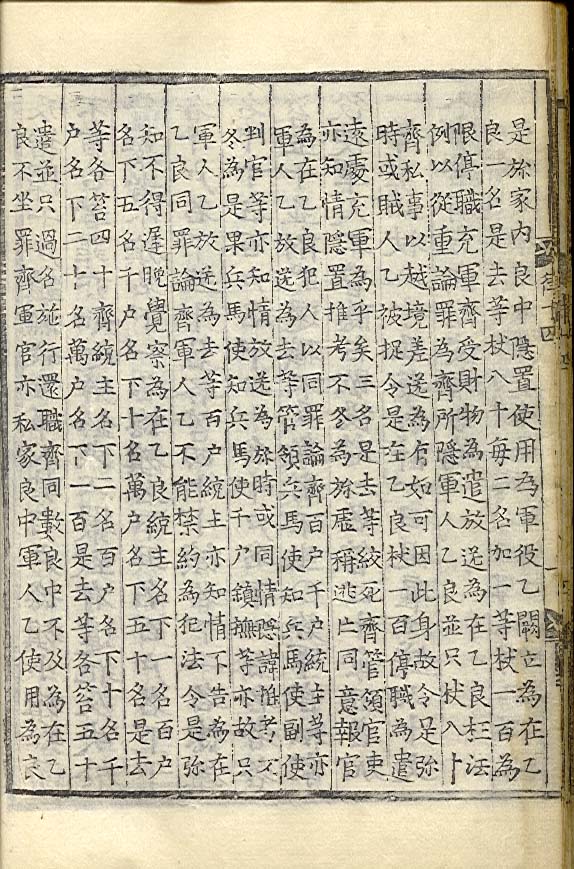 是旀家內良中隱置使用為軍役乙闕立為在乙
良一名是去等杖八十每二名加一等杖一百為
限停職充軍齊受財物為遣放送為在乙良枉法
例以從重論罪為齊所隱軍人乙良並只杖八十
齊私事以越境差送為有如可因此身故令是弥
時或賊人乙被捉令是在乙良杖一百停職為遣
遠處充軍為乎矣三名是去等絞死齊管領官吏
亦知情隱置推考不冬為旀虛稱逃亡同意報官
為在乙良犯人以同罪論齊百户千户統主等亦
軍人乙放送為去等管領兵馬使知兵馬使副使
判官等亦知情放送為旀時或同情隱諱推考不
冬為是果兵馬使知兵馬使千户鎮撫等亦故只
軍人乙放送為去等百户統主亦知情不告為在
乙良同罪論齊軍人乙不能禁約為犯法令是弥
知不得遲晚覺察為在乙良統主名下一名百户
名下五名千户名下十名萬户名下五十名是去
等各笞四十齊統主名下二名百户名下十名千
户名下二十名萬户名下一百是去等各笞五十
遣並只過名施行還職齊同數良中不及為在乙
良不坐罪齊軍官亦私家良中軍人乙使用為良